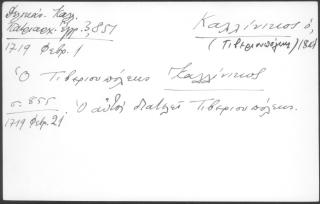 Πατριαρχ. Έγγρ. 3, 851
1719 Φεβρ. 1
Καλλίνικος ὁ,
(Τιβεριουπόλεως)
Ὁ Τιβεριουπόλεως Καλλίνικος
σ. 855
1719 Φεβρ. 21
Ὁ αὐτὸς διατελεῖ Τιβεριουπόλεως.